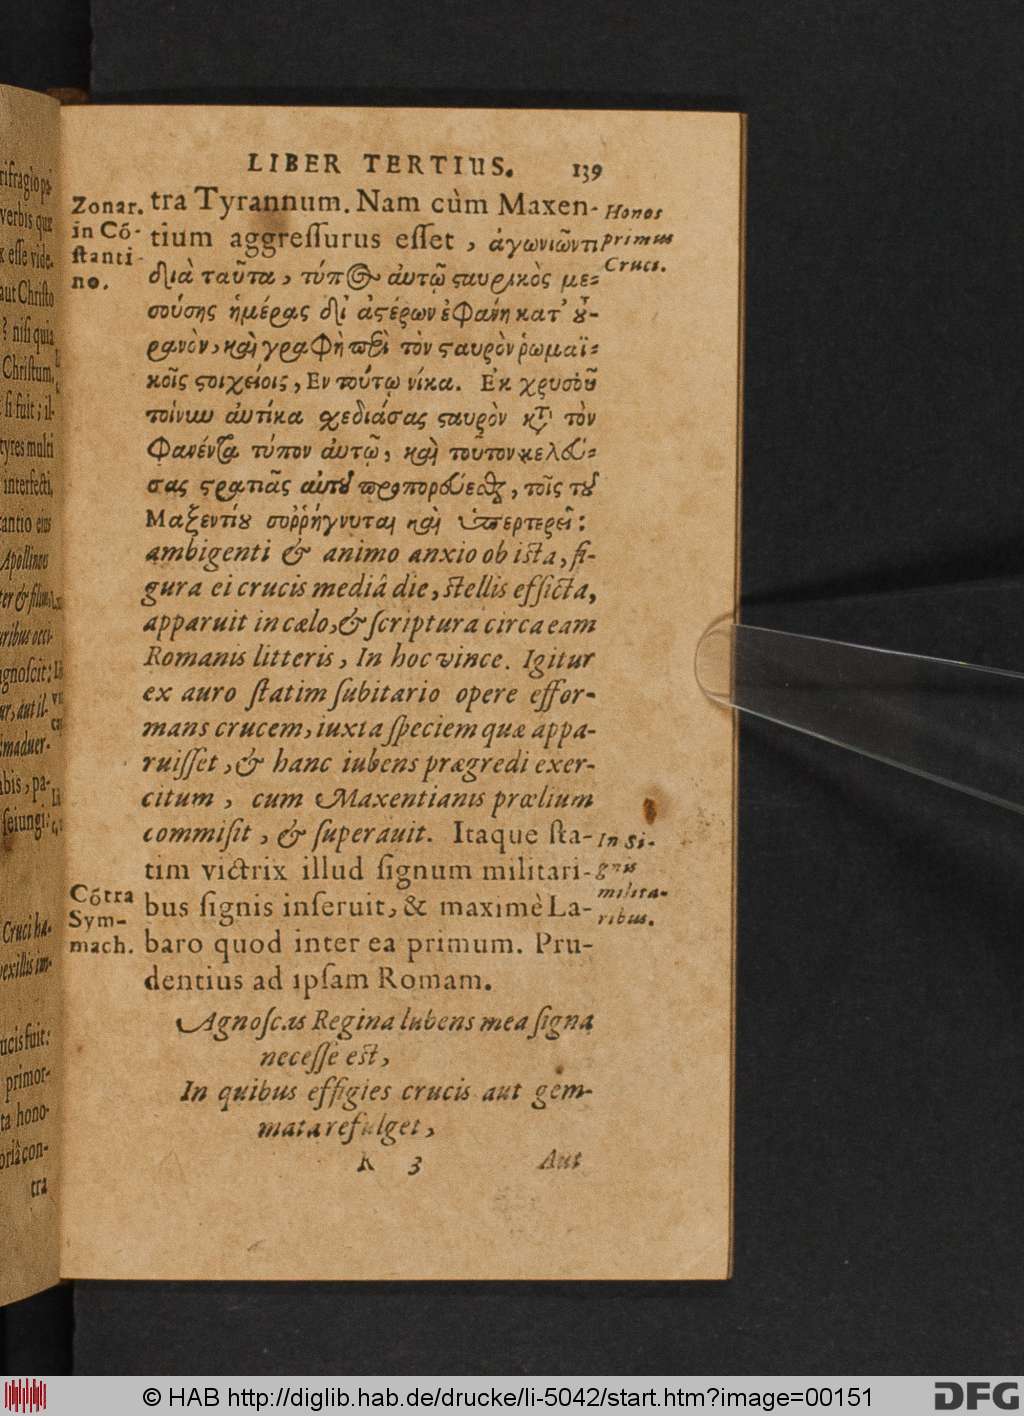 LIBER TERTIUS. 139
Zonar.
in Cō-
stanti-
no.
tra Tyrannum. Nam cùm Maxen-
tium aggressurus esset, ἀγωνιῶντι
διὰ ταῦτα, τύπος αὐτῷ σταυρικὸς με-
σούσης ἡμέρας δι' ἀστέρων ἐφάνη κατ' οὐ-
ρανὸν, καὶ γραφὴ περὶ τὸν σταυρὸν ῥωμαϊ-
κοῖς στοιχείοις, Εν τούτῳ νίκα. Ἐκ χρυσοῦ
τοίνυν αὐτίκα σχεδιάσας σταυρὸν κατὰ τὸν
φανέντα τύπον αὐτῷ, καὶ τοῦτον κελεύ-
σας στρατιᾶς αὐτοῦ προπορεύεσθαι, τοῖς τοῦ
Μαξεντίου συῤῥήγνυται καὶ ὑπερτερεῖ:
ambigenti & animo anxio ob ista, fi-
gura ei crucis mediâ die, stellis efficta,
apparuit in cælo, & scriptura circa eam
Romanis litteris, In hoc vince. Igitur
ex auro statim subitario opere effor-
mans crucem, iuxta speciem quæ appa-
ruisset, & hanc iubens prægredi exer-
citum, cum Maxentianis prælium
commisit, & superauit. Itaque sta-
tim victrix illud signum militari-
bus signis inseruit, & maximè La-
baro quod inter ea primum. Pru-
dentius ad ipsam Romam.
Honos
primus
Cruci.
In si-
gnis
milita-
ribus.
Cōtra
Sym-
mach.
Agnoscas Regina lubens mea signa
necesse est,
In quibus effigies crucis aut gem-
mata refulget,
K 3 Aut
rifragio pa-
verbis quæ
x esse vide.
aut Christo
? nisi quia
Christum,
si fuit; il-
tyres multi
interfecti,
tantio eius
Apollineo
ter & filius
uribus occi-
agnoscit:
ur, aut il-
imaduer-
bis, pa-
seiungi:
Cruci ha-
vexillis im-
ucis fuit:
primor-
ta hono-
oriâ con-
tra
© HAB http://diglib.hab.de/drucke/li-5042/start.htm?image=00151
DFG